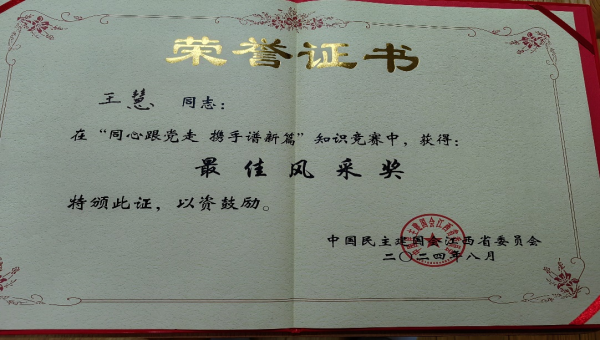 荣誉证书
王慧 同志：
在“同心跟党走 携手谱新篇”知识竞赛中，获得：
最佳风采奖
特颁此证，以资鼓励。
中国民主建国会江西省委员会
二〇二四年八月